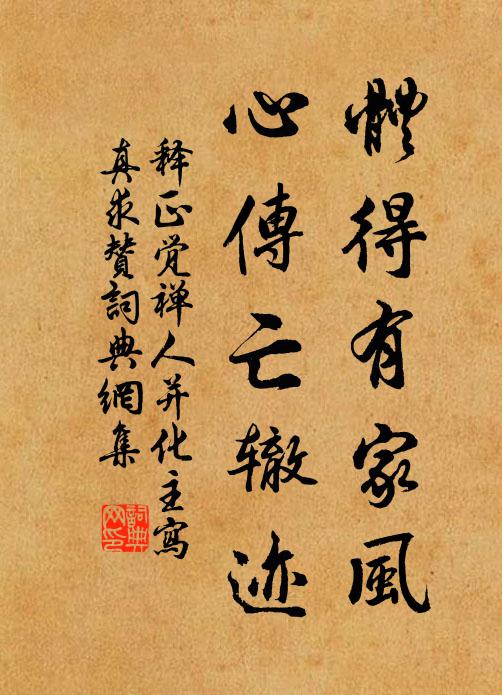 體得有家風
心傳亡辙迹
释正觉禅人并化主寫
真求贊詞典網集
詞典网印